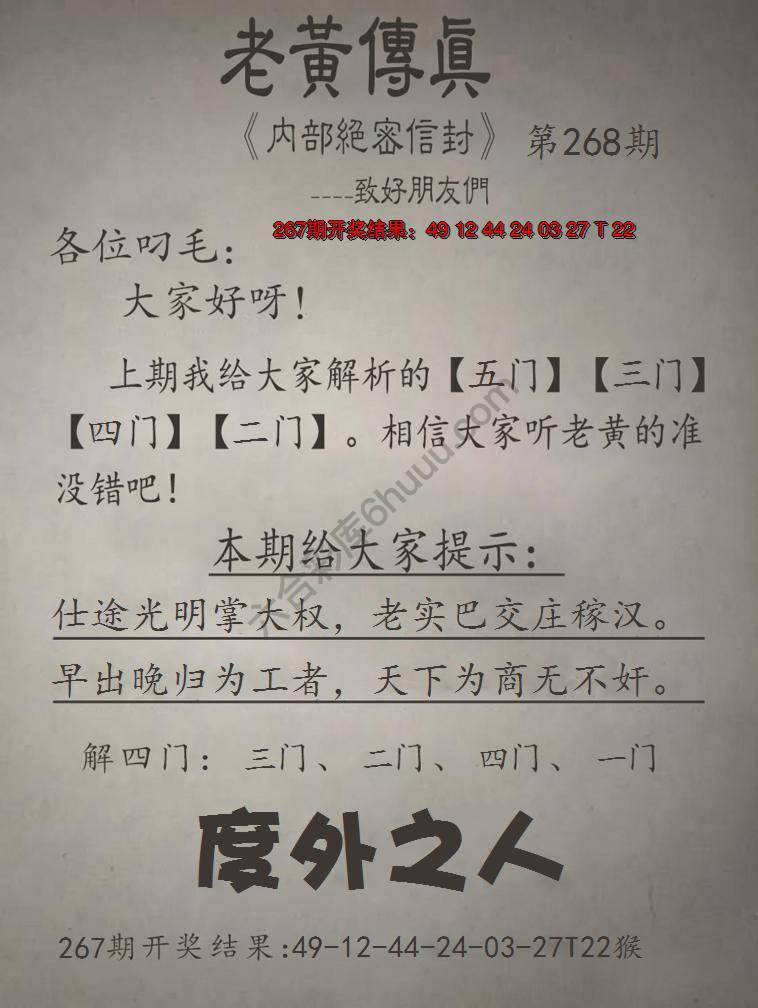 老黃傳真
《内部絕密信封》 第268期
----致好朋友們
267期开奖结果：49 12 44 24 03 27 T 22
各位叼毛：
大家好呀！
上期我给大家解析的【五门】【三门】
【四门】【二门】。相信大家听老黄的准
没错吧！
本期给大家提示：
仕途光明掌大权，老实巴交庄稼汉。
早出晚归为工者，天下为商无不奸。
解四门：三门、二门、四门、一门
度外之人
267期开奖结果:49-12-44-24-03-27T22猴
六合彩库6huuu.com